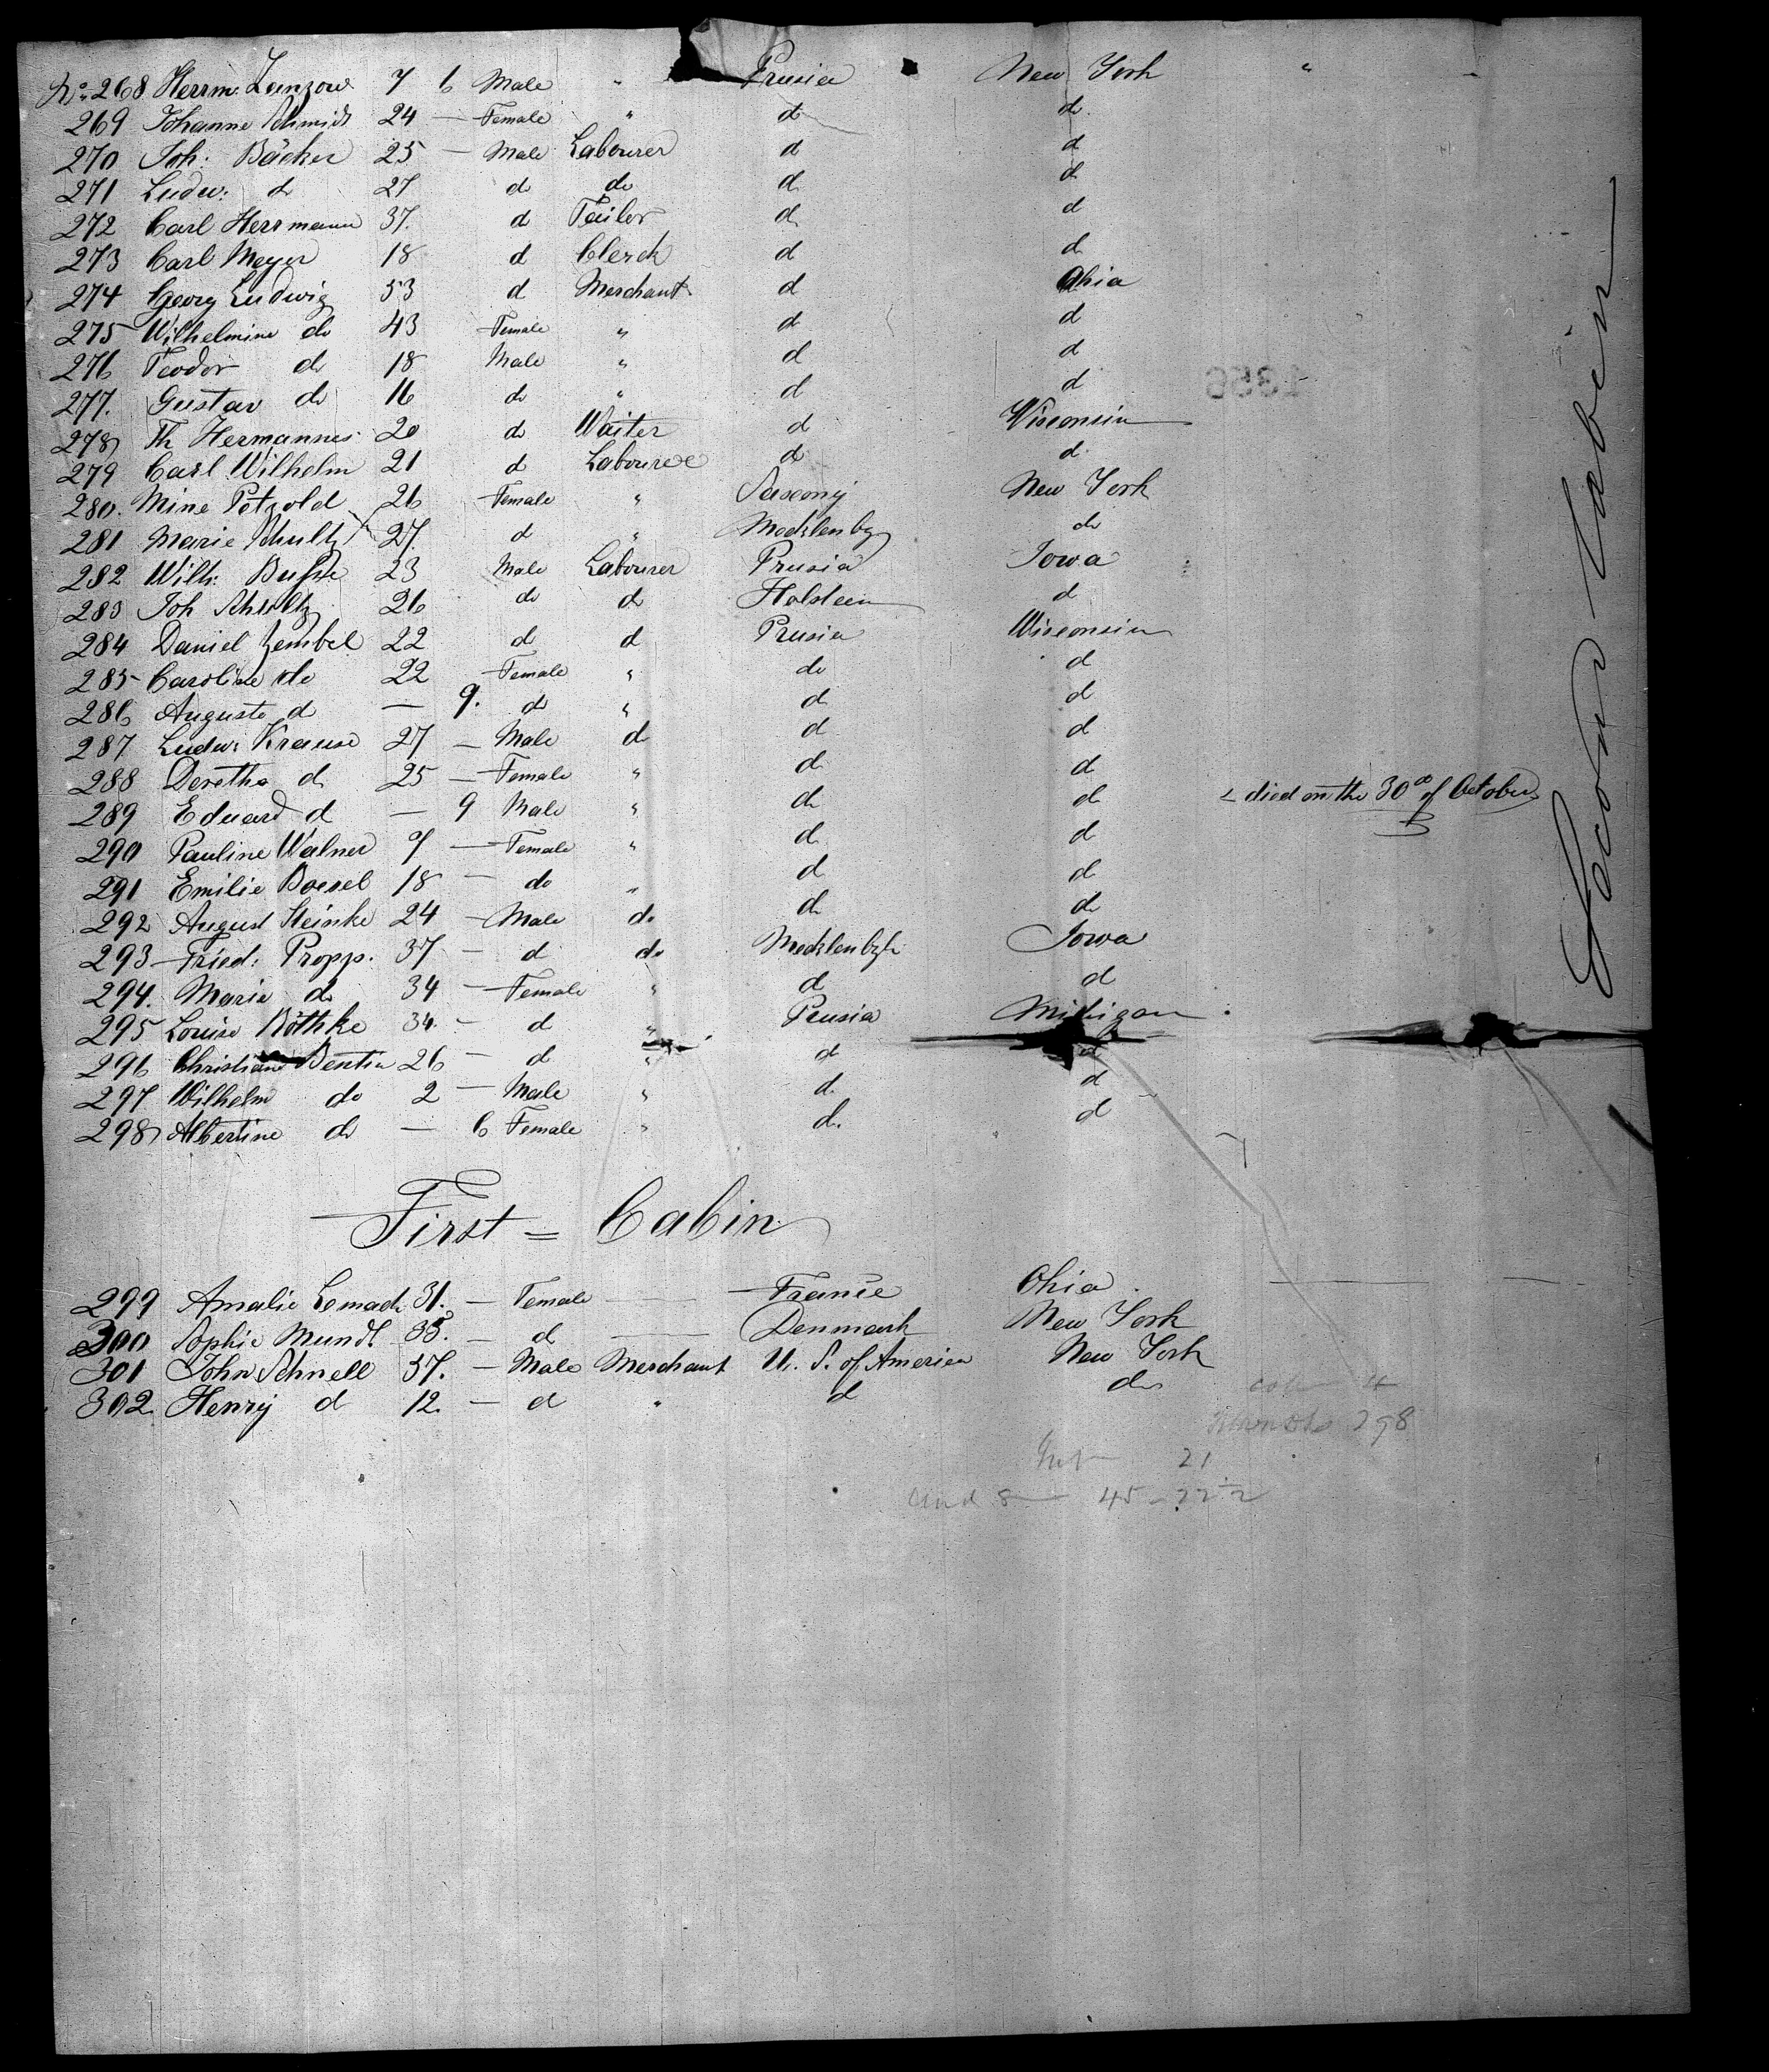 No. 268 Herrm. Zanzow 7 6 Male " Prusia New York "
269 Johanne Schmidt 24 — Female " d do.
270 Joh: Bäcker 25 — Male Labourer d d
271 Ludw: d 27 do do d d
272 Carl Herrmann 37. d Tailor d d
273 Carl Meyer 18 d Clerck d d
274 Georg Ludwig 53 d Merchant d Ohia
275 Wilhelmine do 43 Female " d d
276 Teodor d 18 Male " d d
277. Gustav do 16 do " d d
278 Th Hermannes 20 d Waiter d Wisconsin
279 Carl Wilhelm 21 d Labourer d d
280. Mine Petzold 26 Female " Saxony New York
281 Marie Schultz 27. d " Mecklenbg do
282 Wilh: Buske 23 Male Labourer Prusia Iowa
283 Joh Schultz 26 do d Holstein d
284 Daniel Zembel 22 d d Prusia Wisconsin
285 Caroline do 22 Female " do d
286 Auguste d — 9. do " d d
287 Ludw: Krause 27 — Male d d d
288 Doretha d 25 — Female " d d
289 Eduard d — 9 Male " d d died on the 30th of October
290 Pauline Walner 9 — Female " d d
291 Emilie Boesel 18 — do " d d
292 August Steinke 24 — Male do d d
293 Fried: Propp. 37 — d do Mecklenbgh Iowa
294. Marie do 34 — Female " d d
295 Louise Röthke 34. — d " Prusia Michigan
296 Christiane Bentin 26 — d " d d
297 Wilhelm do 2 — Male " d. d
298 Albertine do — 6 Female " d. d
Second Cabin
First = Cabin
299 Amalie Lemach 31. — Female — France Ohia.
300 Sophie Mundt 35. — d — Denmark New York
301 John Schnell 37. — Male Merchant U. S. of America New York
302. Henry d 12. — d " d do
4
298
21
45 - 22 1/2